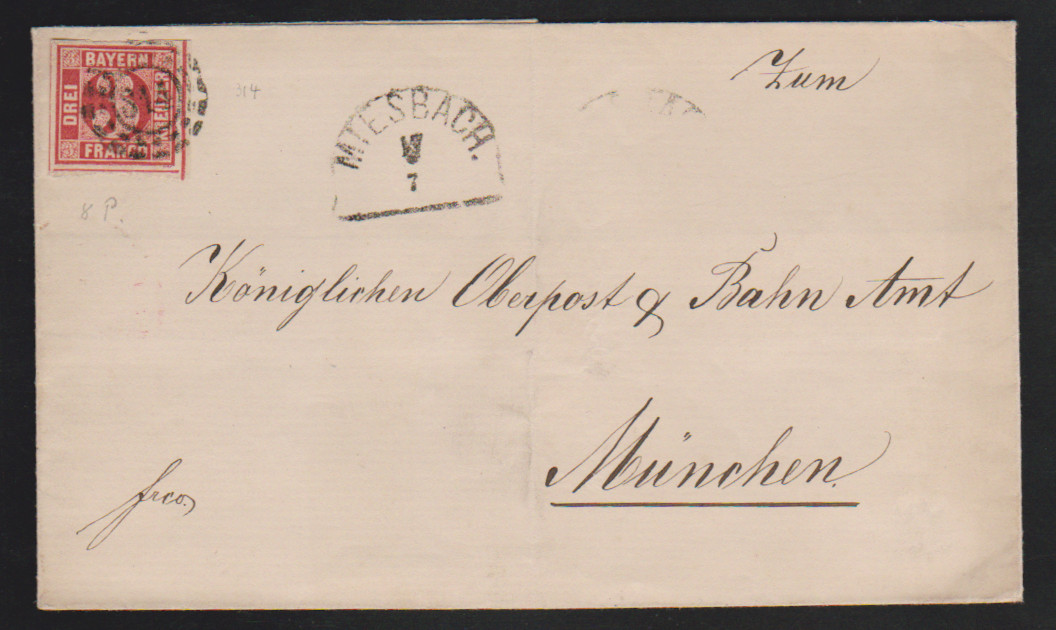 BAYERN
DREI
KREUZER
FRANCO
314
8 P.
MIESBACH.
7
Zum
Königlichen Oberpost & Bahn Amt
München.
frco.